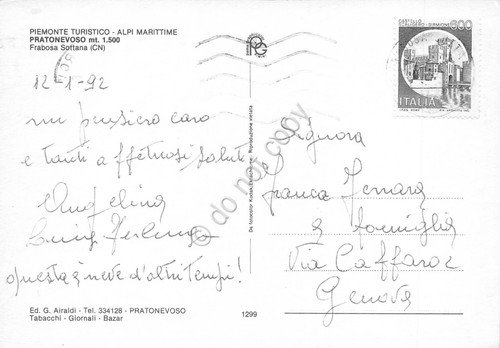 PIEMONTE TURISTICO - ALPI MARITTIME
PRATONEVOSO mt. 1.500
Frabosa Sottana (CN)
12-1-92
un pensiero caro
e tanti affettuosi saluti
Angelina
Luigi
questa è neve d'altri tempi!
Ed. G. Airaldi - Tel. 334128 - PRATONEVOSO
Tabacchi - Giornali - Bazar
1299
Riproduzione vietata
CASTELLO
SCALIGERO - SIRMIONE
600
ITALIA
Signora
Franca Ferrara
e famiglia
Via Caffaro
Genova
do not copy